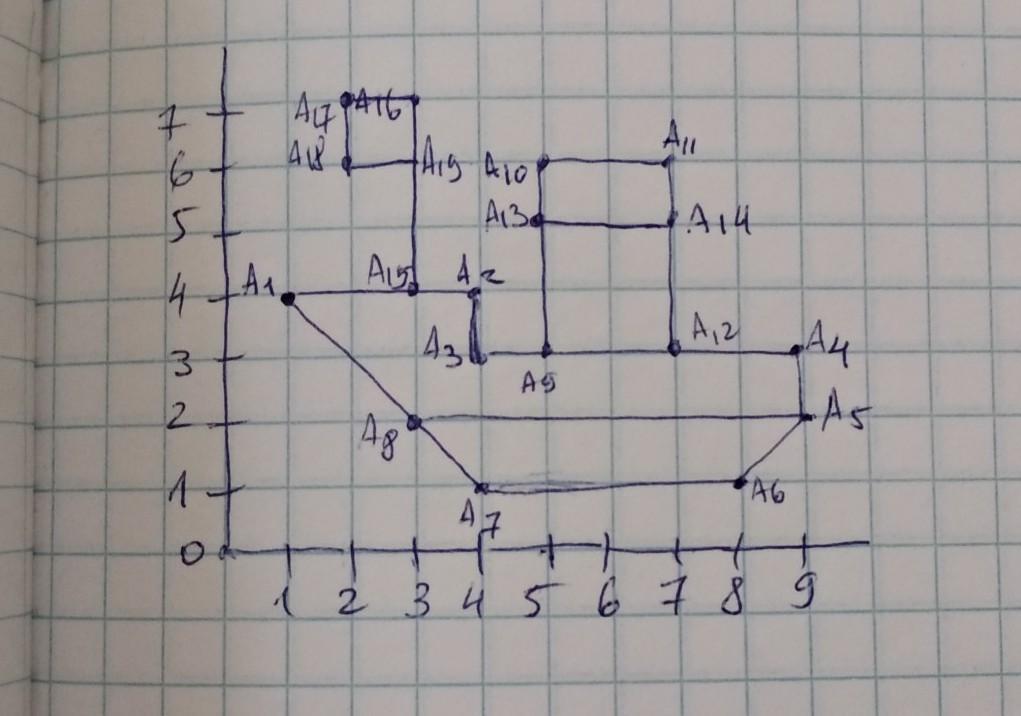 7 A17 A16
A11
6 A18 A19 A10
5 A13 A14
4 A1 A15 A2
3 A3 A9 A12 A4
2 A8 A5
1 A7 A6
0
1 2 3 4 5 6 7 8 9